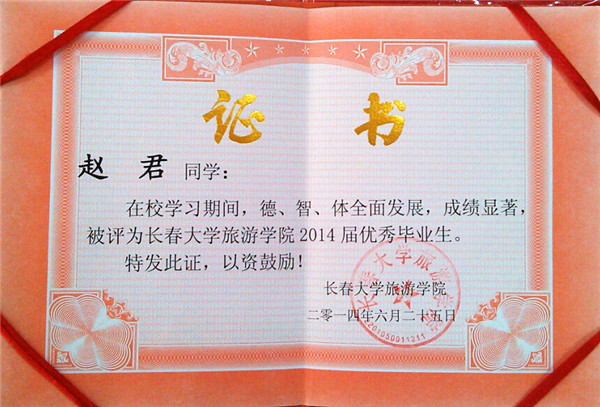 证书
赵君 同学：
在校学习期间，德、智、体全面发展，成绩显著，
被评为长春大学旅游学院2014届优秀毕业生。
特发此证，以资鼓励！
长春大学旅游学院
二零一四年六月二十五日
长春大学旅游学院
2201050011211